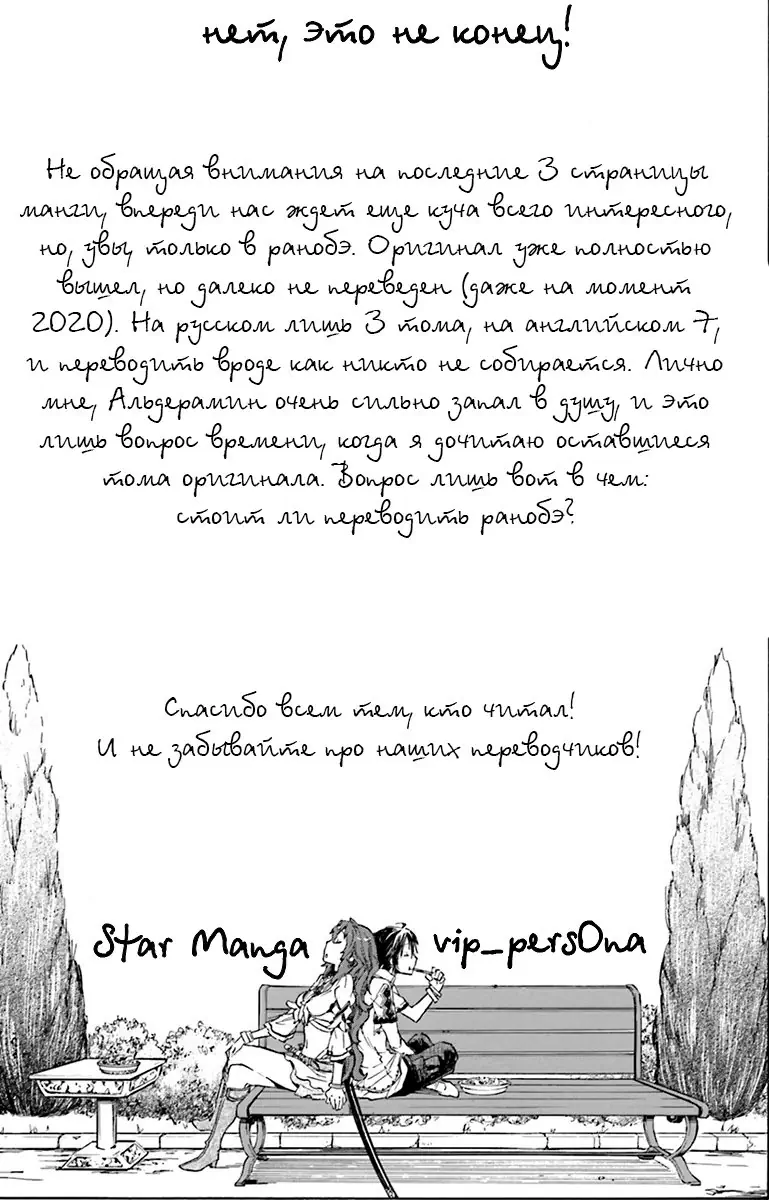 нет, это не конец!
Не обращая внимания на последние 3 страницы
манги, впереди нас ждет еще куча всего интересного,
но, увы, только в ранобэ. Оригинал уже полностью
вышел, но далеко не переведен (даже на момент
2020). На русском лишь 3 тома, на английском 7,
и переводить вроде как никто не собирается. Лично
мне, Альдерамин очень сильно запал в душу, и это
лишь вопрос времени, когда я дочитаю оставшиеся
тома оригинала. Вопрос лишь вот в чем:
стоит ли переводить ранобэ?
Спасибо всем тем, кто читал!
И не забывайте про наших переводчиков!
Star Manga vip_pers0na